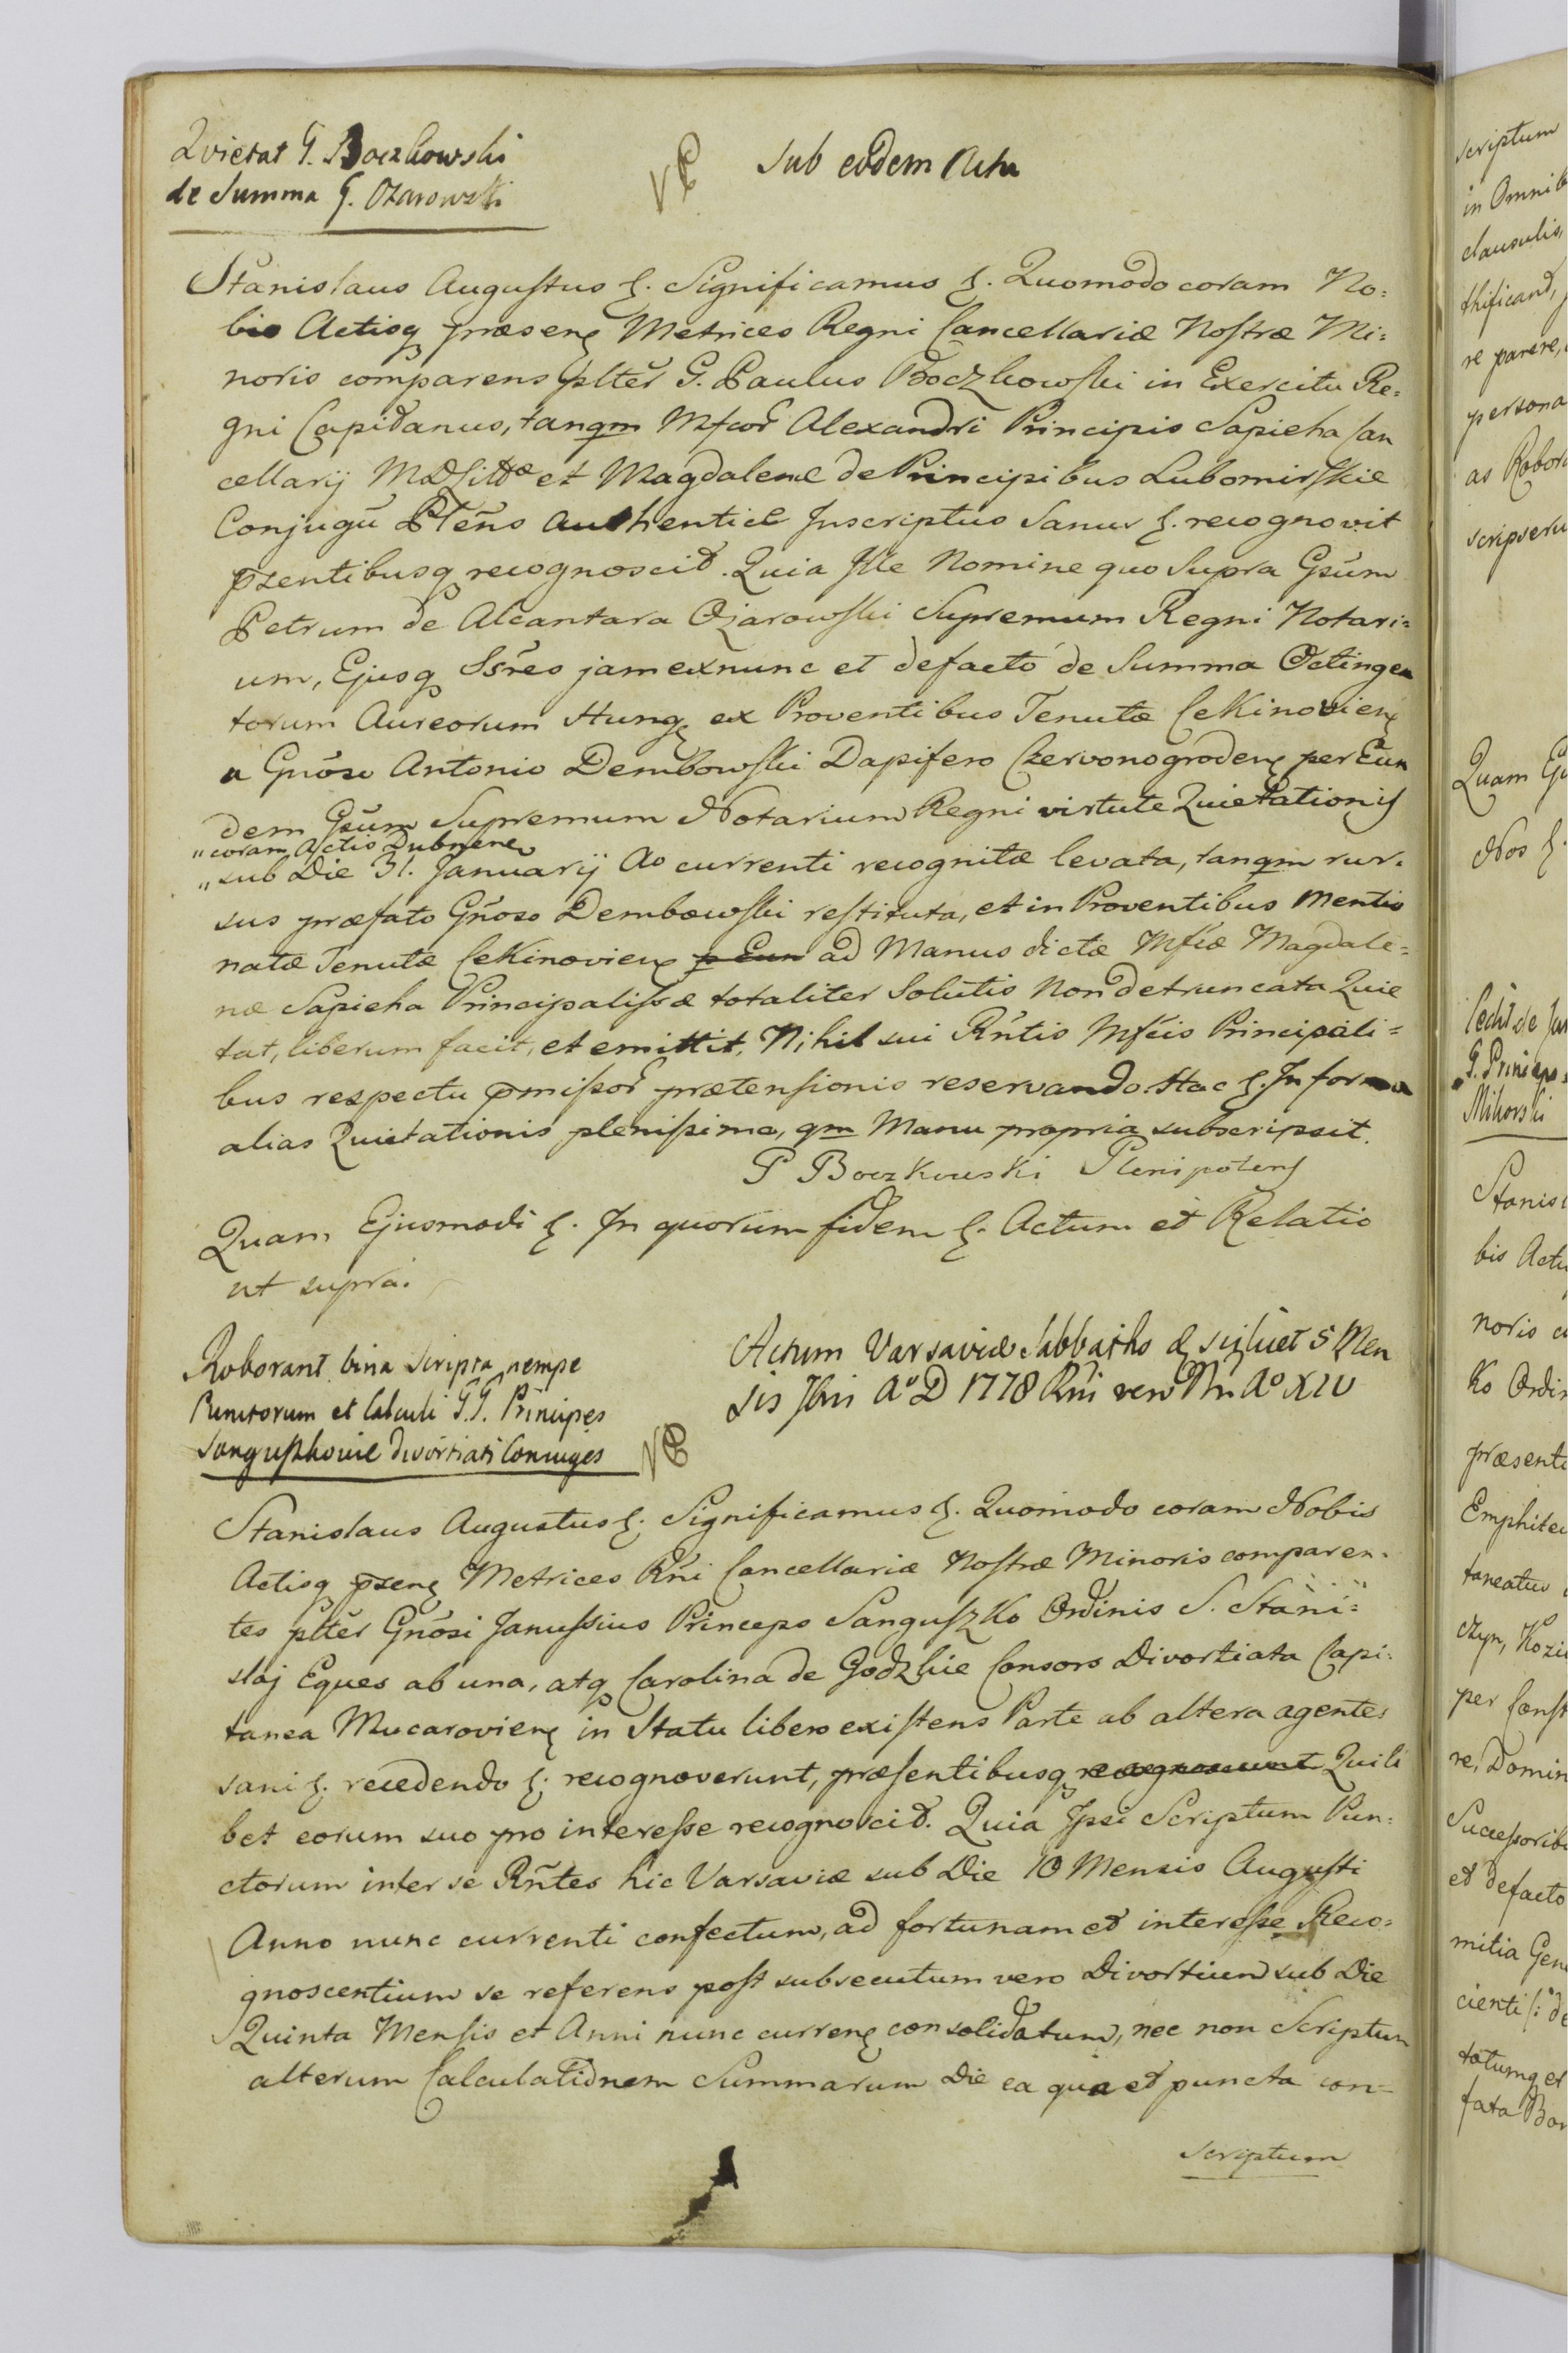 Quietat G. Boczkowski
de Summa G. Ożarowski
Sub eodem Actu
Stanislaus Augustus &. Significamus &. Quomodo coram No:
bis Actisq præsenꝭ Metrices Regni Cancellariæ Nostræ Mi:
noris comparens pslter G. Paulus Boczkowski in Exercitu Re:
gni Capitanus, tanqm Mfcor Alexandri Principis Sapieha Can
cellarij MDLittæ et Magdalenæ de Principibus Lubomirskie
Conjugū Pleñs Authentice Inscriptus Sanus &. recognovit
pzentibusq recognoscit. Quia Ille Nomine quo Supra Gsum
Petrum de Alcantara Ożarowski Supremum Regni Notari:
um, Ejusq Ssres jam exnunc et defacto de Summa Octingen
torum Aureorum Hungꝭ ex Proventibus Tenutæ Cekinovienꝭ
a Gnoso Antonio Dembowski Dapifero Czervonogrodenꝭ per Eun
dem Gsum Supremum Notarium Regni virtute Quietationis
"coram Actis Dubnenꝭ
"sub Die 31. Januarij Ao currenti recognitæ levata, tanqm rur:
sus præfato Gnoso Dembowski restituta, et in Proventibus Mentio
natæ Tenutæ Cekinovienꝭ p Eun ad Manus dictæ Mfcæ Magdale:
næ Sapieha Principalissæ totaliter Solutis Non detruncata Quie
tat, liberum facit, et emittit, Nihil sui Rntis Mfcis Principali=
bus respectu pmissor prætensionis reservando. Hac &. In forma
alias Quietationis plenissima, qm Manu propria subscripsit.
P Boczkowski Plenipotens
Quam Ejusmodi &. In quorum fidem &. Actum et Relatio
ut supra.
Roborant bina Scripta nempe
Punctorum et Calculi G.G. Principes
Sanguszkowie divortiati Coniuges
Actum Varsaviæ Sabbatho & scilicet 5 Men
sis Xbri Ao D 1778 Rni vero Nri Ao XIV
Stanislaus Augustus &. Significamus &. Quomodo coram Nobis
Actisq pzenꝭ Metrices Rni Cancellariæ Nostræ Minoris comparen:
tes plter Gnosi Janussius Princeps Sanguszko Ordinis S. Stani:
slaj Eques ab una, atq Carolina de Godzkie Consors Divortiata Capi:
tanea Mucarovienꝭ in Statu libero existens Parte ab altera agentes
sani &. recedendo &. recognoverunt, præsentibusq recognoscunt Quili
bet eorum suo pro interesse recognoscit. Quia Ipsi Scriptum Pun:
ctorum inter se Rntes hic Varsaviæ sub Die 10 Mensis Augusti
Anno nunc currenti confectum, ad fortunam et interesse Reco:
gnoscentium se referens post subsecutum vero Divortium sub Die
Quinta Mensis et Anni nunc currenꝭ consolidatum, nec non Scriptum
alterum Calculationem Summarum Die ea qua et puncta con=
scriptum
scriptum
in Omnib
clausulis,
thificand,
re parere,
persona
as Robora
scripseru
Quam Ej
Nos &.
G. Princeps
Mikorski
Stanisl
bis Actis
noris c
ko Ordin
præsenti
Emphiteu
taneatus
per Const
re, Domin
Successorib
et defacto
mitia Gene
cienti
totumq et
fata Bon